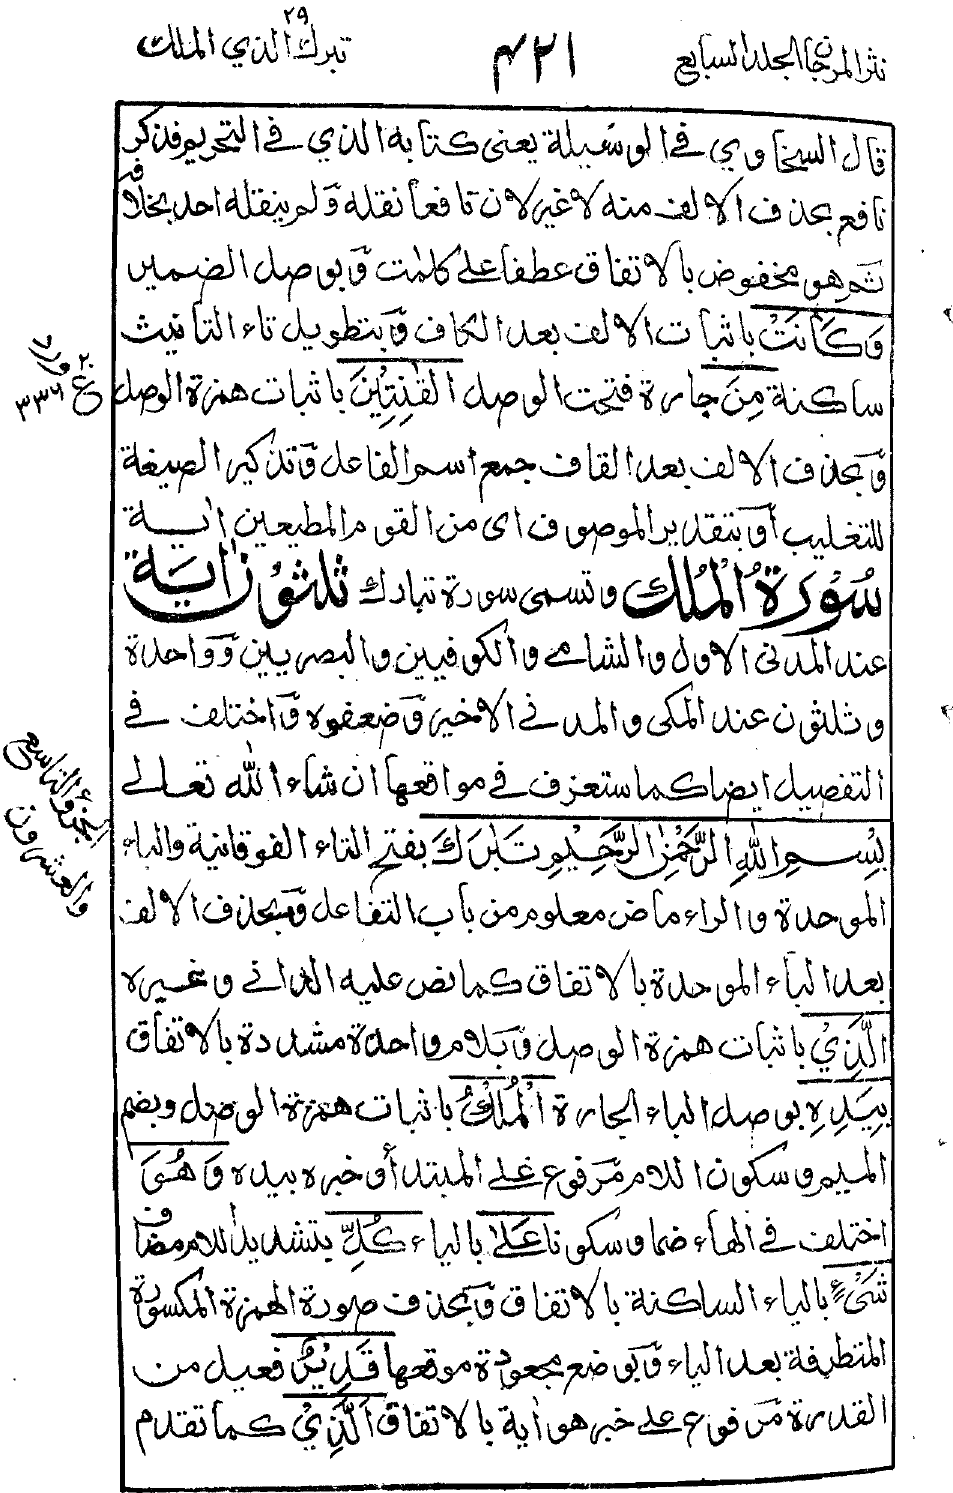 نثر المرجان الجلد السابع
٤٢١
تبرك الذي ٢٩ الملك
قال السخاوي في الوسيلة يعنى كتابه الذي في التحريم فذكر
نافع بحذف الالف منه لا غير لان نافعا نقله وَلم ينقله احد بخلاف
ثم هو مخفوض بالاتفاق عطفا على كلمٰت وَبوصل الضمير
وَكَانَتْ باثبات الالف بعد الكاف وَبتطويل تاء التانيث
ساكنة مِنَ جارة فتحت الوصل الْقٰنِتِيْنَ باثبات همزة الوصل
وَبحذف الالف بعد القاف جمع اسم الفاعل وَتذكير الصيغة
للتغليب أوَبتقدير الموصوف اى من القوم المطيعين اٰية
سُوْرَةُ الْمُلْكِ وتسمى سورة تبارك ثلثون اٰية
عند المدنى الاول والشامي والكوفيين والبصريين وَواحدة
وثلثون عند المكى والمدنى الاخير وَضعفوه وَاختلف في
التفصيل ايضا كما ستعرف في مواقعها ان شاء الله تعالى
بِسْمِ اللّٰهِ الرَّحْمٰنِ الرَّحِيْمِ تَبٰرَكَ بفتح التاء الفوقانية والباء
الموحدة والراء ماض معلوم من باب التفاعل وَبحذف الالف
بعد الباء الموحدة بالاتفاق كما نص عليه الدانى وغيره
الَّذِيْ باثبات همزة الوصل وَبلام واحدة مشددة بالاتفاق
بِيَدِهِ بوصل الباء الجارة الْمُلْكُ باثبات همزة الوصل وبضم
الميم وسكون اللام مَرفوع على المبتدأ وخبره بيده وَهُوَ
اختلف في الهاء ضما وسكونا عَلٰى بالياء كُلِّ بتشديد اللام مضاف
شَيْءٍ بالياء الساكنة بالاتفاق وَبحذف صورة الهمزة المكسورة
المتطرفة بعد الياء وَبوضع مجعودة موقعها قَدِيْرٌ فعيل من
القدرة مَرفوع على خبر هو اٰية بالاتفاق الَّذِيْ كما تقدم
ع
٢٠
٣٣٦
الجزء التاسع
والعشرون